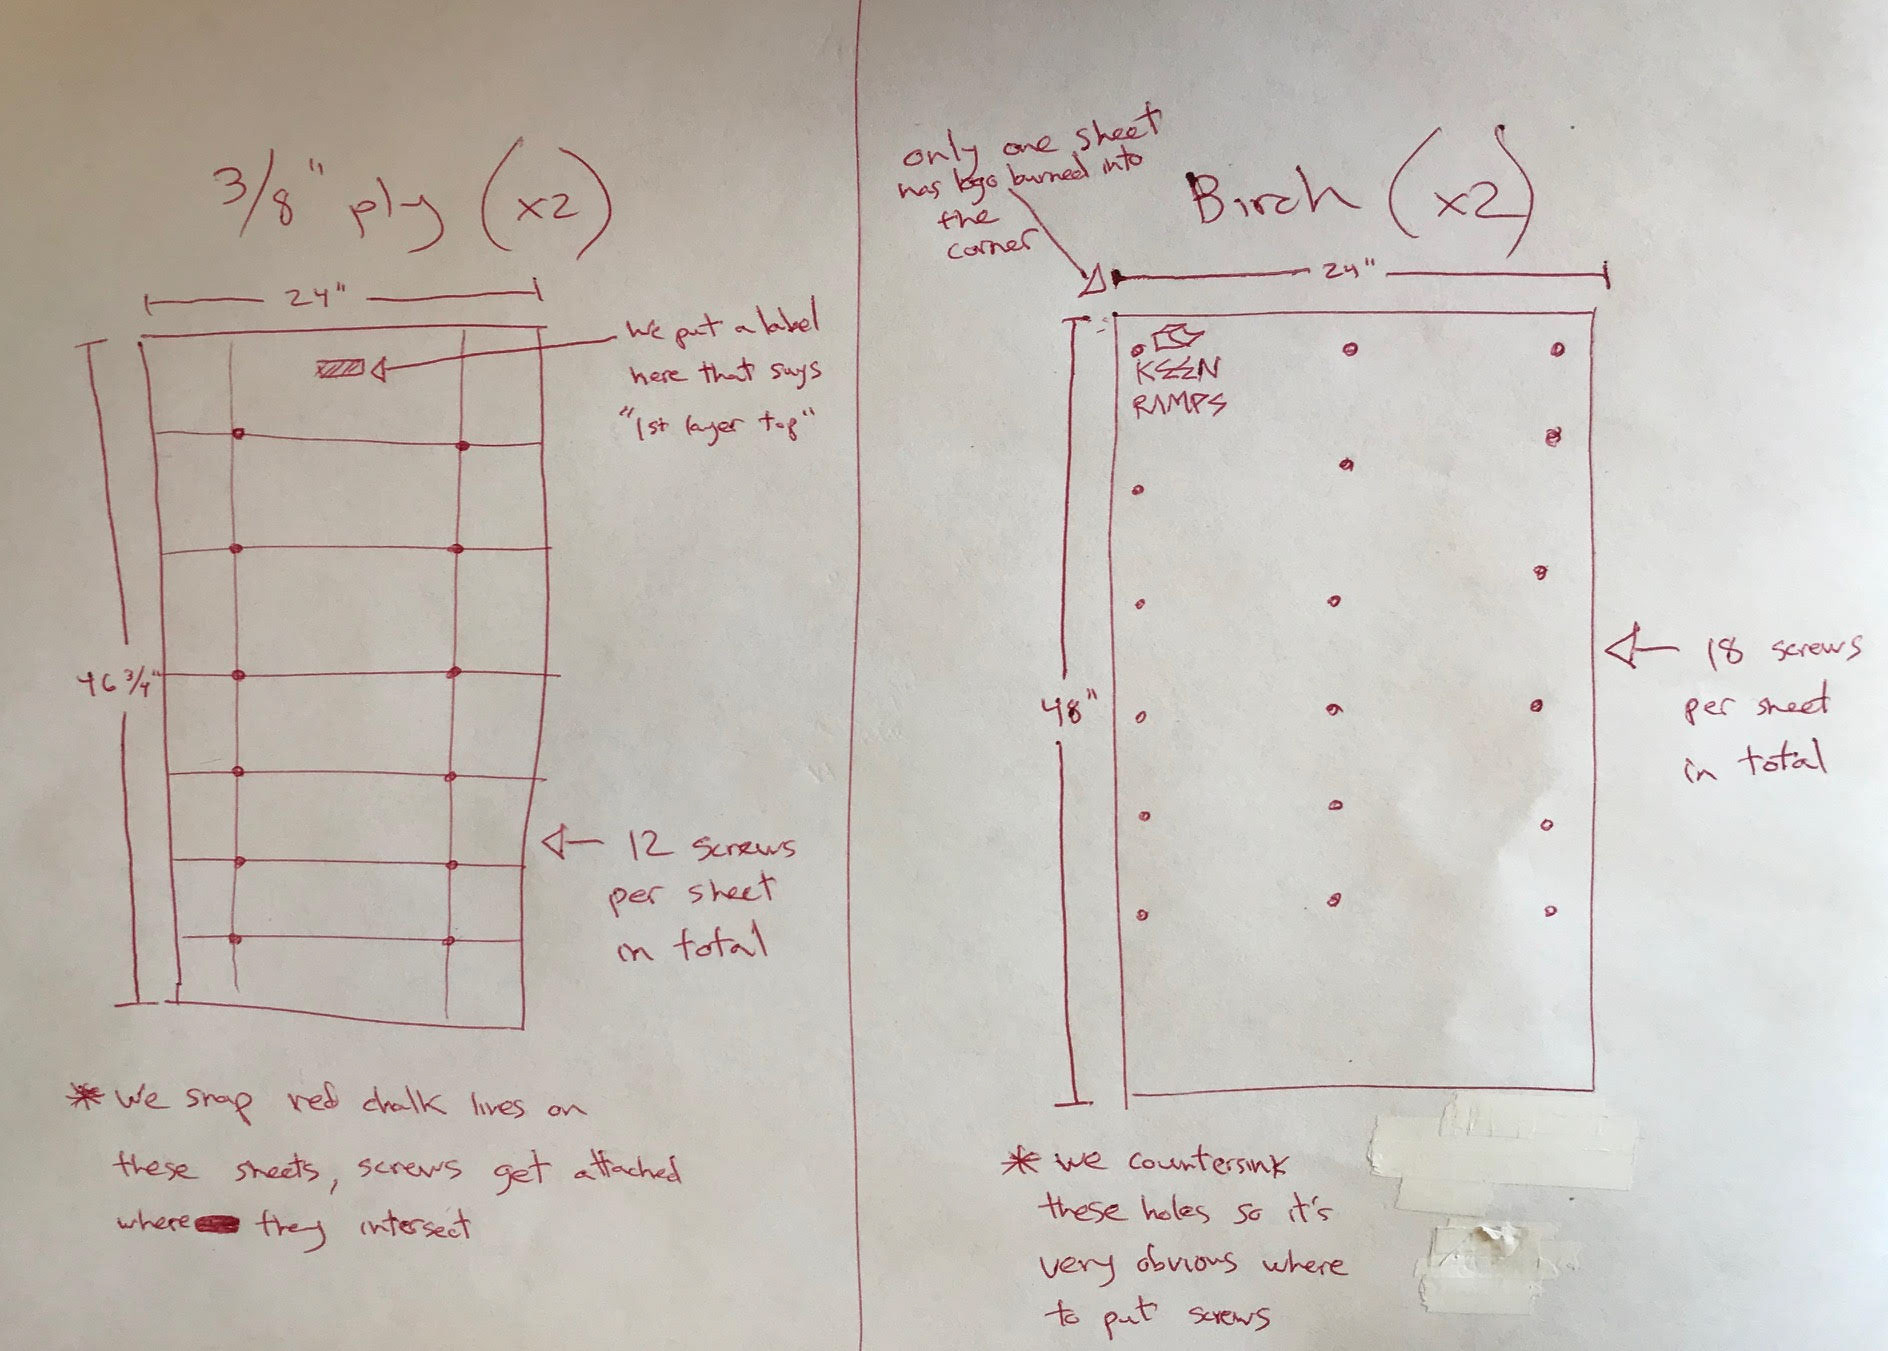 3/8" ply (x2)
24"
We put a label
here that says
"1st layer top"
46 3/4"
12 screws
per sheet
in total
* We snap red chalk lines on
these sheets, screws get attached
where they intersect
only one sheet
has logo burned into
the
corner
Birch (x2)
24"
KEEN
RAMPS
48"
18 screws
per sheet
in total
* we countersink
these holes so it's
very obvious where
to put screws